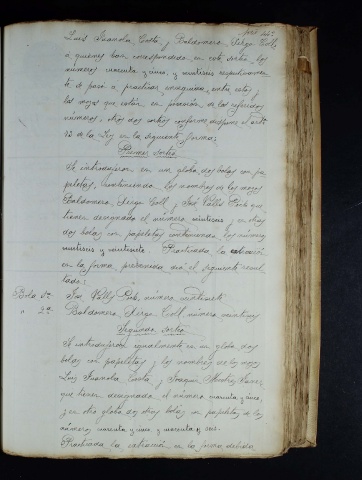 Luis Juanola Costa, y Baldomero Llergo Coll,
a quienes han correspondido en este sorteo los
números cuarenta y cinco, y veintiseis respectivamen-
te se pasó a practicar enseguida entre estos y
los mozos que están en posesión de los referidos
números, otros dos sorteos conforme dispone el artº
de la Ley en la siguiente forma;
Primer sorteo
Se introdujeron en un globo dos bolas con pa-
peletas, conteniendo los nombres de los mozos
Baldomero Llergo Coll, y José Valls Pich que
tienen designado el número veintiseis, y en otro
dos bolas con papeletas conteniendo los números
veintiseis y veintisiete. Practicada la extracción
en la forma prevenida dió el siguiente resul-
tado:
Bola 1ª José Valls Pich, número veintisiete
" 2ª Baldomero Llergo Coll, número veintiseis
Segundo sorteo
Se introdujeron igualmente en un globo dos
bolas con papeletas, y los nombres de los mozos
Luis Juanola Costa, y Joaquin
que tienen designado el número cuarenta y cinco,
y en otro globo dos otras bolas con papeletas de los
números cuarenta y cinco, y cuarenta y seis.
Practicada la extracción en la forma debida